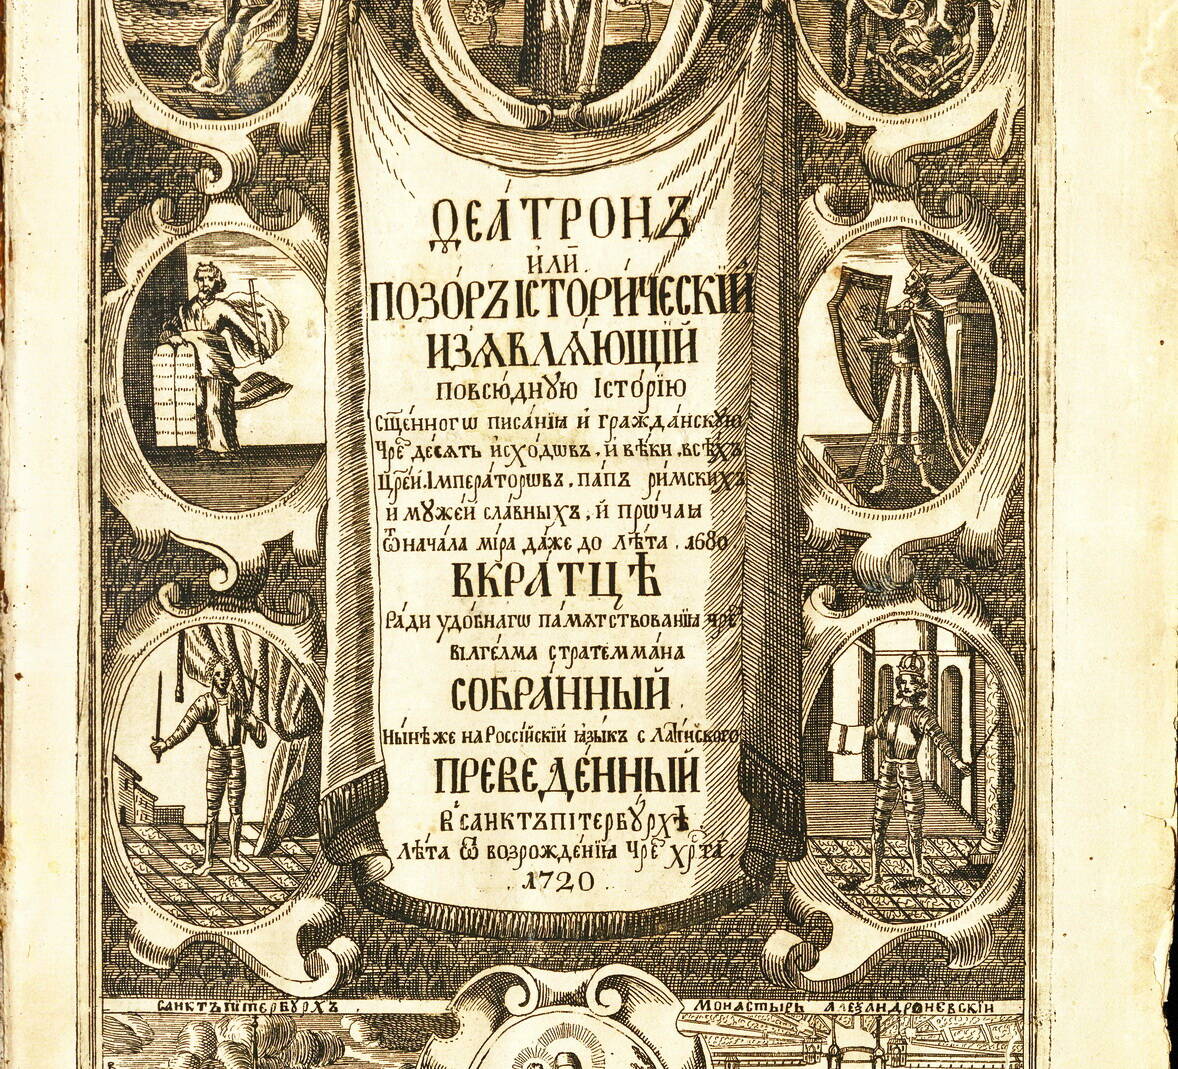 Ѳеа́тронъ
и҆лѝ
позо́ръ істори́ческїй
и҆з̾ѧвлѧ́ющїй
повсю́дную Істо́рїю
сщ҃е́нногѡ писа́нїѧ и҆ гражда́нскую
чре́ де́сѧть и҆схо́дѡвъ, и҆ вѣ́ки, всѣ́хъ
цр҃е́й, Імпера́торѡвъ, па́пъ ри́мскихъ
и҆ муже́й сла́вныхъ, и҆ прѡ́чаѧ
Ѿ нача́ла мі́ра да́же до лѣ́та , 1680
вкра́тцѣ
Ра́ди удо́бнагѡ па́мѧтствованїѧ чре́
вілге́лма стратемма́на
собра́нный
ны́нѣ же на Россі́йскїй ѧзы́къ с латі́нского
преведе́нный
в̾ санктъпітербу́рхѣ .
лѣ́та ѿ возрожде́нїѧ чре́ хр҃та̀
. 1720 .
Санктъпітербурхъ .
Монастырь Алеѯандроневскіи